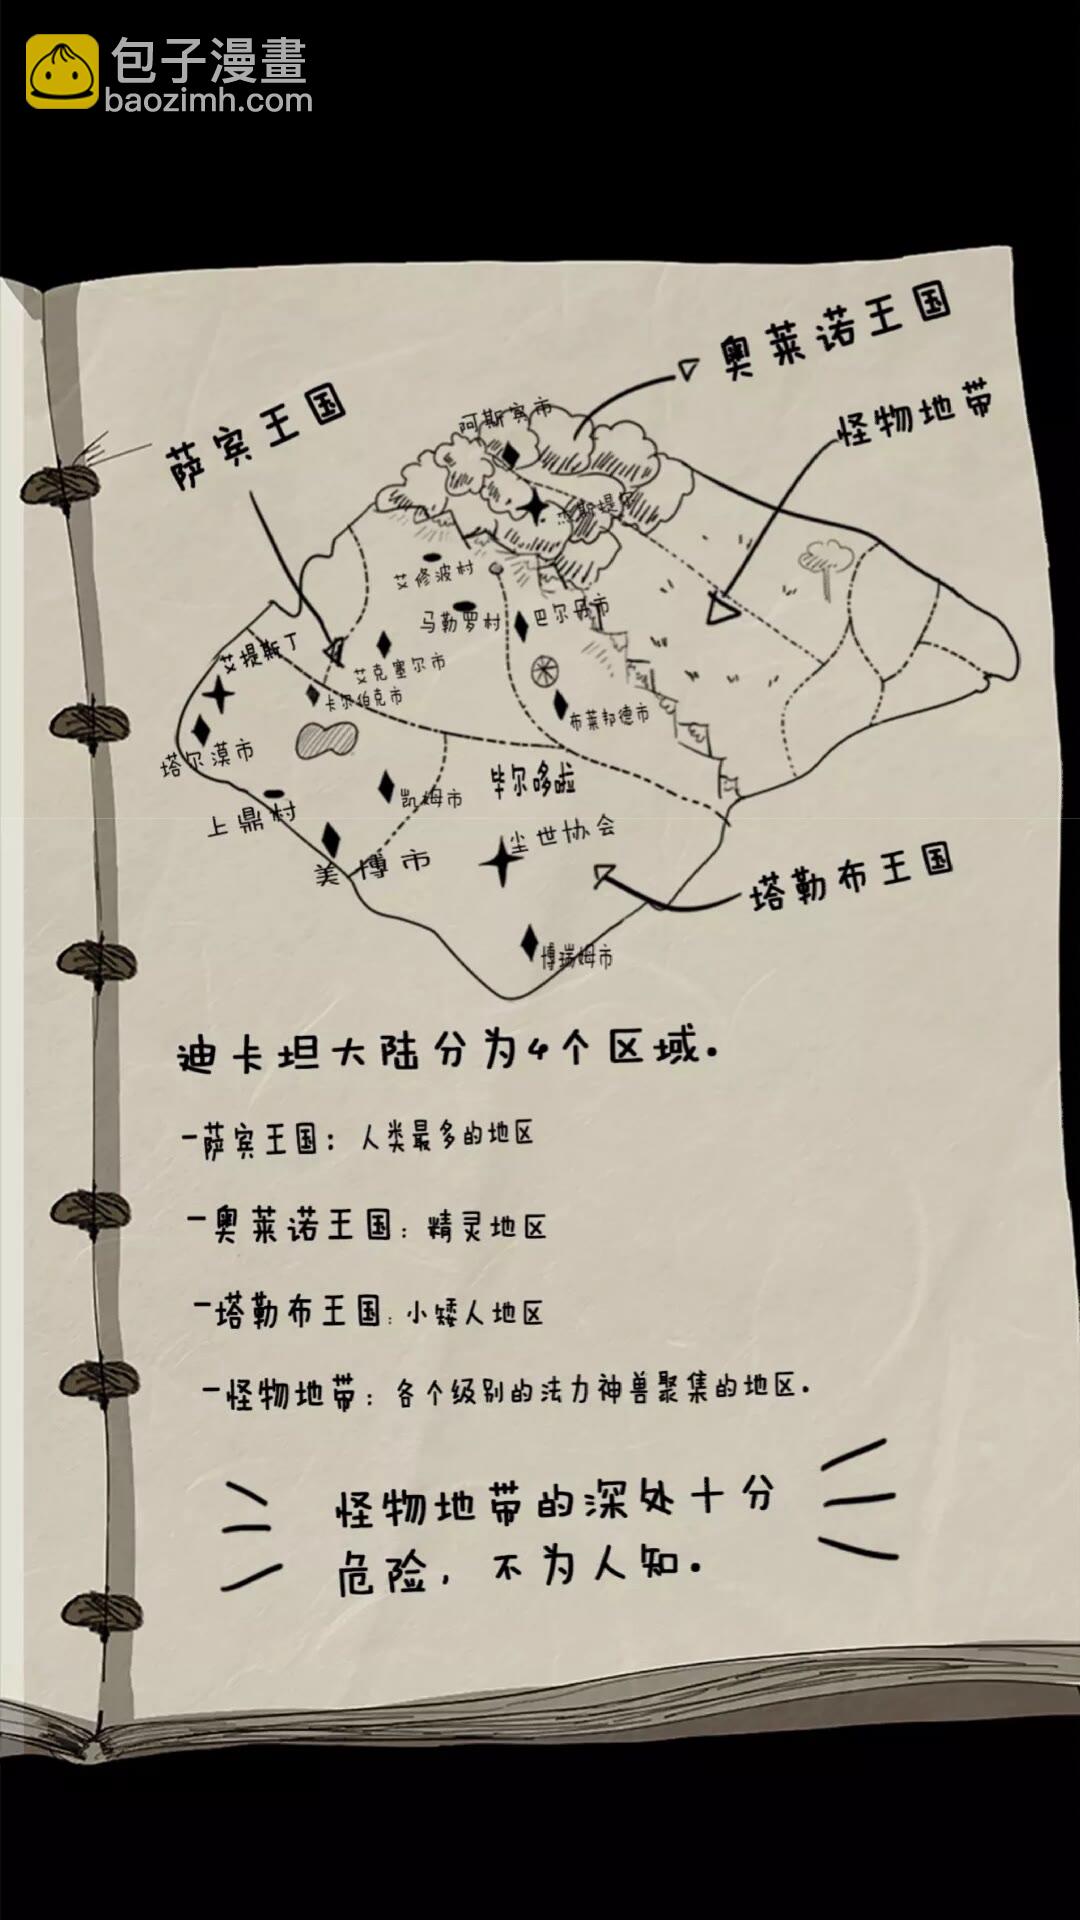 包子漫畫
baozimh.com
奥莱诺王国
怪物地带
萨宾王国
阿斯宾市
杰斯提
艾修波村
马勒罗村
巴尔丹市
艾提斯丁
艾克塞尔市
卡尔伯克市
布莱邦德市
塔尔漠市
毕尔哆啦
凯姆市
上鼎村
尘世协会
美博市
塔勒布王国
博瑞姆市
迪卡坦大陆分为4个区域.
-萨宾王国: 人类最多的地区
-奥莱诺王国: 精灵地区
-塔勒布王国: 小矮人地区
-怪物地带: 各个级别的法力神兽聚集的地区.
怪物地带的深处十分
危险, 不为人知.